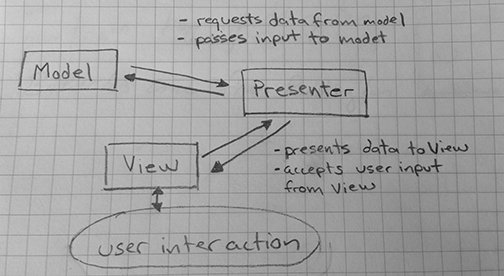 - requests data from model
- passes input to model
Model
Presenter
View
- presents data to View
- accepts user input
from View
user interaction